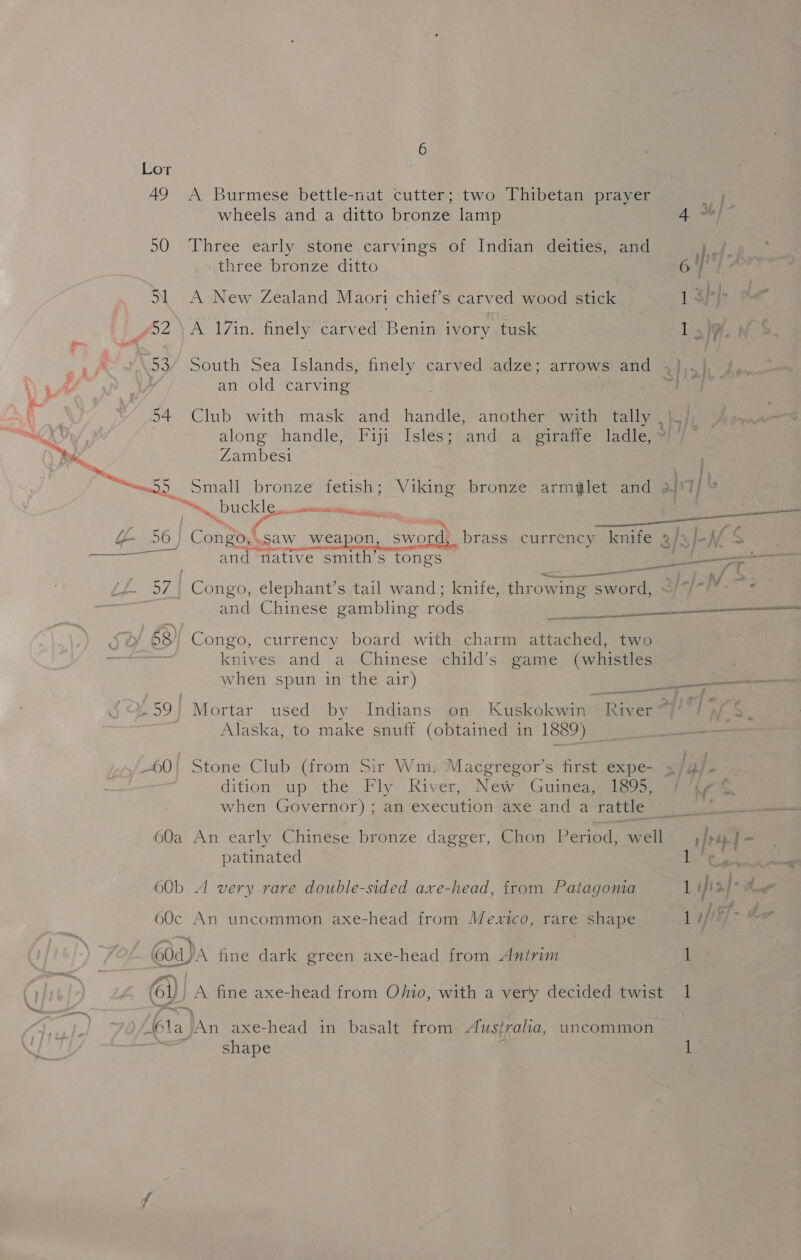 6
Lot
49 A Burmese bettle-nut cutter; two Thibetan prayer
wheels and a ditto bronze lamp 4
50 Three early stone carvings of Indian deities, and
three bronze ditto 6
51 A New Zealand Maori chief's carved wood stick 1
52 A 17in. finely carved Benin ivory tusk 1
53 South Sea Islands, finely carved adze; arrows and
an old carving
54 Club with mask and handle, another with tally
along handle, Fiji Isles; and a giraffe ladle,
Zambesi
55 Small bronze fetish; Viking bronze armlet and
buckle
56 Congo, saw weapon, sword, brass currency knife
and native smith's tongs
57 Congo, elephant's tail wand; knife, throwing sword,
and Chinese gambling rods
58 Congo, currency board with charm attached, two
knives and a Chinese child's game (whistles
when spun in the air)
59 Mortar used by Indians on Kuskokwin River
Alaska, to make snuff (obtained in 1889)
60 Stone Club (from Sir Wm. Macgregor's first expe-
dition up the Fly River, New Guinea, 1895,
when Governor); an execution axe and a rattle
60a An early Chinese bronze dagger, Chon Period, well
patinated 1
60b A very rare double-sided axe-head, from Patagonia 1
60c An uncommon axe-head from Mexico, rare shape 1
60d A fine dark green axe-head from Antrim 1
61 A fine axe-head from Ohio, with a very decided twist 1
61a An axe-head in basalt from Australia, uncommon
shape 1